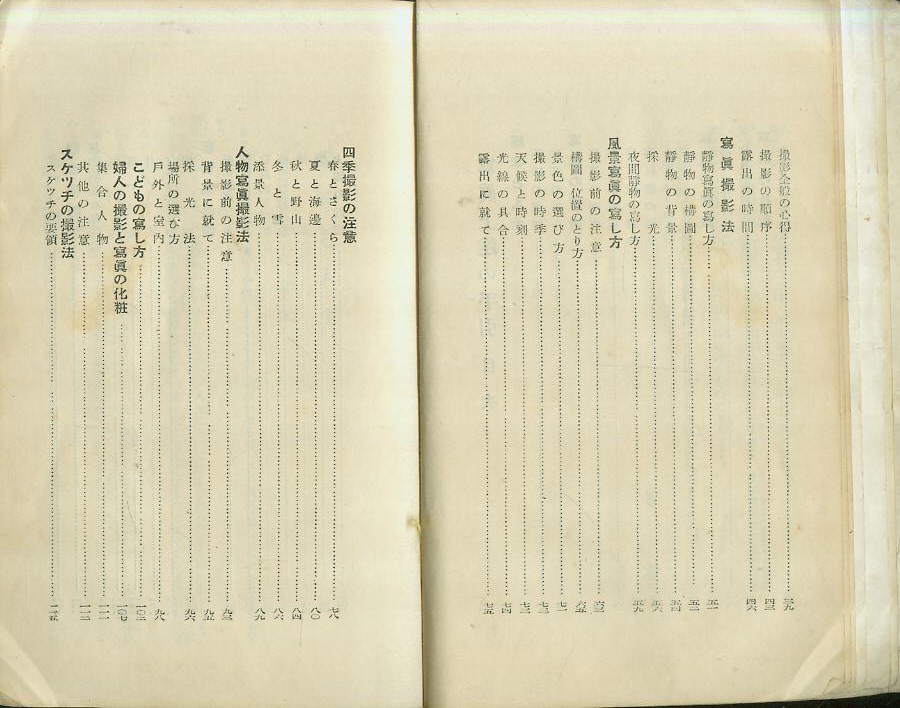 撮影全般の心得……三九
撮影の順序……四三
露出の時間……四六
寫眞撮影法
靜物寫眞の寫し方……五一
靜物の構圖……五二
靜物の背景……五四
採光……五六
夜間靜物の寫し方……五九
風景寫眞の寫し方
撮影前の注意……六三
構圖、位置のとり方……六五
景色の選び方……七一
撮影の時季……七三
天候と時刻……七三
光線の具合……七四
露出に就て……七五
四季撮影の注意
春とさくら……七八
夏と海邊……八〇
秋と野山……八四
冬と雪……八六
添景人物……八九
人物寫眞撮影法
撮影前の注意……九三
背景に就て……九五
採光法……九六
場所の選び方
戶外と室內……九八
こどもの寫し方……一〇三
婦人の撮影と寫眞の化粧……一〇七
集合人物……一一一
其他の注意……一一三
スケツチの撮影法
スケツチの要領……一一五